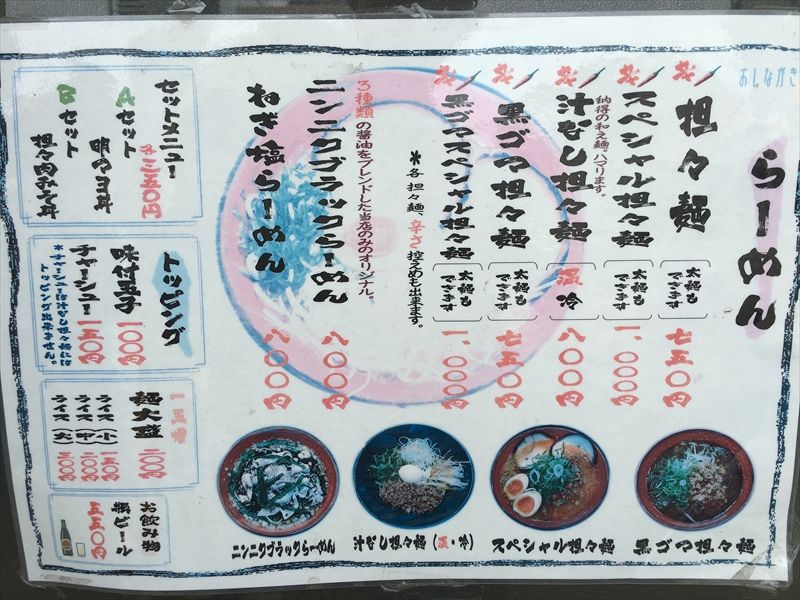 おしながき
らーめん
担々麺
太麺もできます
七五〇円
スペシャル担々麺
太麺もできます
一、〇〇〇円
納得の和え麺。ハマります。
汁なし担々麺
温
冷
八〇〇円
黒ゴマ担々麺
太麺もできます
七五〇円
黒ゴマスペシャル担々麺
太麺もできます
一、〇〇〇円
＊各 担々麺、辛さ 控えめも出来ます。
3種類の醤油をブレンドした当店のみのオリジナル。
ニンニクブラックらーめん
八〇〇円
ねぎ塩らーめん
八〇〇円
セットメニュー
Aセット
明マヨ丼
Bセット
担々肉みそ丼
トッピング
味付玉子
チャーシュー
＊チャーシューは汁なし担々麺にはトッピング出来ません。
麺大盛
ライス(小)
ライス(中)
ライス(大)
お飲み物
瓶ビール
五五〇円
ニンニクブラックらーめん
汁なし担々麺(温・冷)
スペシャル担々麺
黒ゴマ担々麺